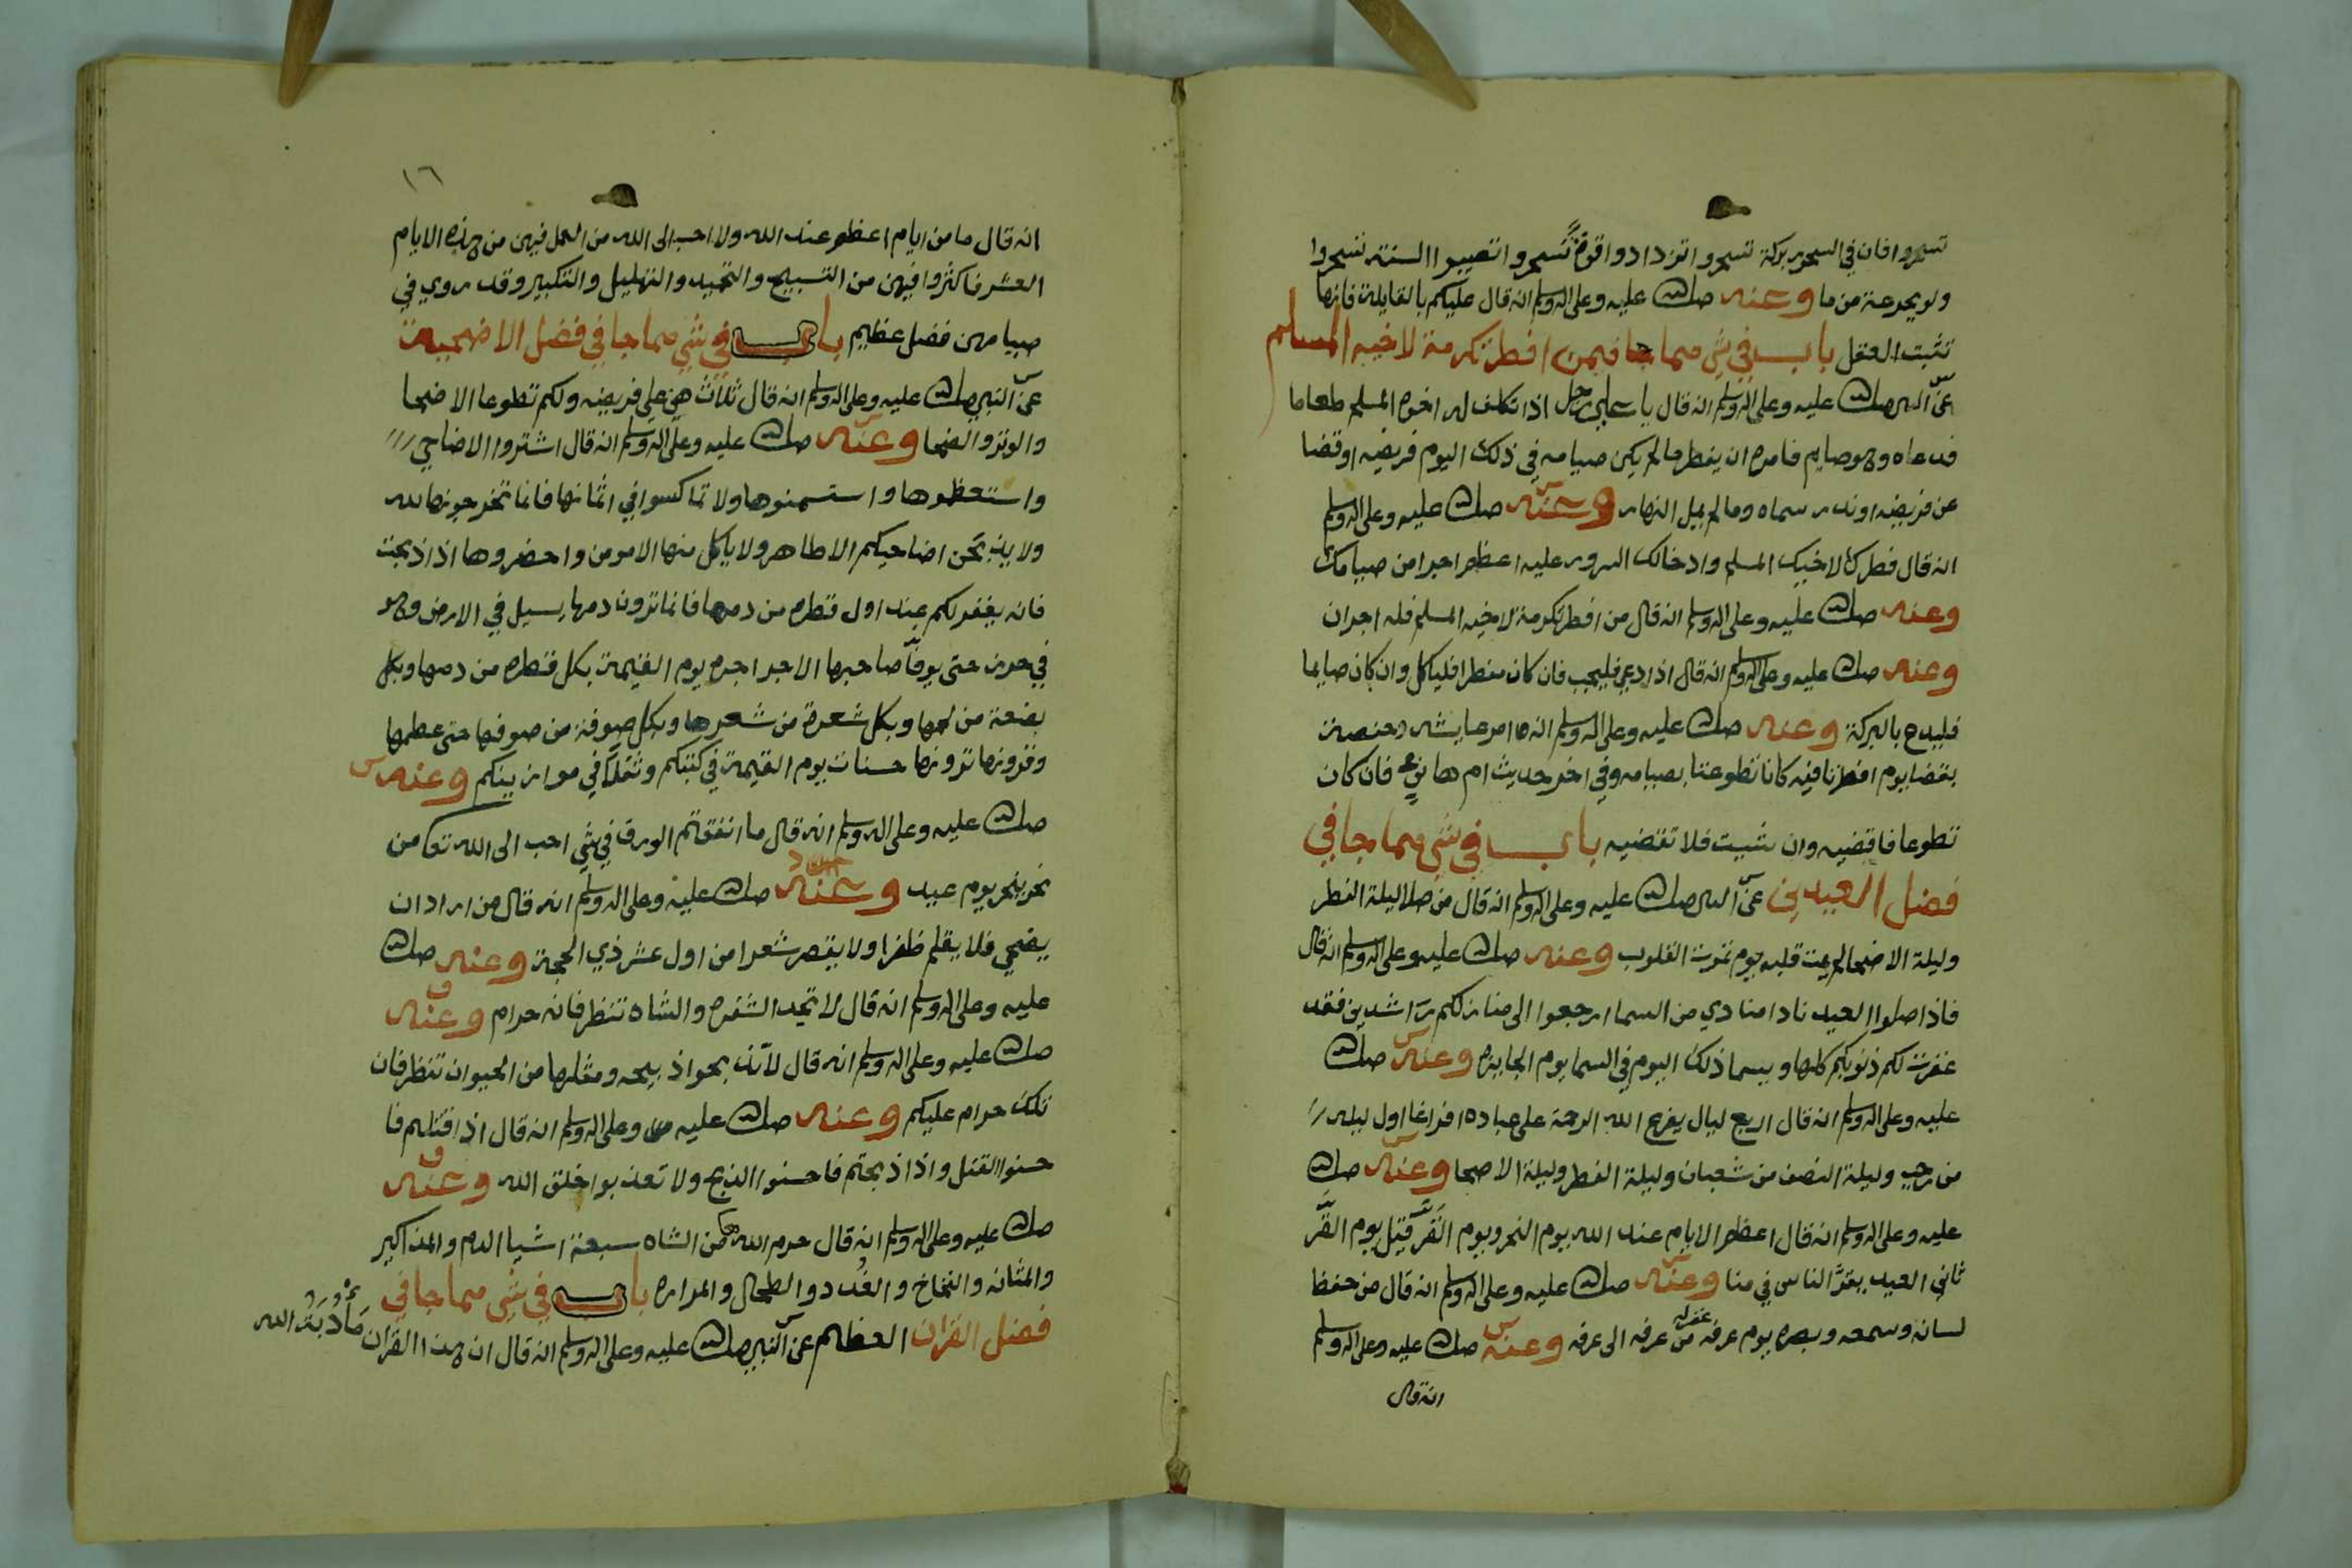 تسحروا فان في السحور بركة تسحروا تزدادوا قوة تسحروا تصيبوا السنة تسحروا
ولو بجرعة من ما وعنه صلى الله عليه وعلى اله وسلم انه قال عليكم بالقايلة فانها
تثبت العقل باب في شي مما جا فيمن افطر تكرمة لاخيه المسلم
عن النبي صلى الله عليه وعلى اله وسلم انه قال رجل اذا تكلف له اخوه المسلم طعاما
فدعاه وهو صايم فامره ان يفطر ما لم يكن صيامه في ذلك اليوم فريضه او قضا
عن فريضه او نذر سماه وما لم يميل النهار وعنه صلى الله عليه وعلى اله وسلم
انه قال فطرك لاخيك المسلم وادخالك السرور عليه اعظم اجرا من صيامك
وعنه صلى الله عليه وعلى اله وسلم انه قال من افطر تكرمة لاخيه المسلم فله اجران
وعنه صلى الله عليه وعلى اله وسلم انه قال اذا دعي فليجب فان كان مفطرا فلياكل وان كان صايما
فليدع بالبركة وعنه صلى الله عليه وعلى اله وسلم انه امر عايشه وحفصة
بقضا يوم افطرتا فيه كانتا تطوعتا بصيامه وفي اخر حديث ام هاني فان كان
تطوعا فاقضيه وان شيت فلا تقضيه باب في شي مما جا في
فضل العيدين عن النبي صلى الله عليه وعلى اله وسلم انه قال من صلا ليلة الفطر
وليلة الاضحا لم يمت قلبه يوم تموت القلوب وعنه صلى الله عليه وعلى اله وسلم انه قال
فاذا صلوا العيد نادا منادي من السما ارجعوا الى منازلكم راشدين فقد
غفرت لكم ذنوبكم كلها ويسما ذلك اليوم في السما يوم الجايزه وعنه صلى الله
عليه وعلى اله وسلم انه قال اربع ليال يفرغ الله الرحمة على عباده افراغا اول ليله
من رجب وليلة النصف من شعبان وليلة الفطر وليلة الاضحا وعنه صلى الله
عليه وعلى اله وسلم انه قال اعظم الايام عند الله يوم النحر ويوم القَرّ قيل يوم القَرّ
ثاني العيد يقرّ الناس في منا وعنه صلى الله عليه وعلى اله وسلم انه قال من حفظ
لسانه وسمعه وبصره يوم عرفه غفر له من عرفه الى عرفه وعنه صلى الله عليه وعلى اله وسلم
انه قال
١٦
انه قال ما من ايام اعظم عند الله ولا احب الى الله من العمل فيهن من هذه الايام
العشر فاكثروا فيهن من التسبيح والتحميد والتهليل والتكبير وقد روي في
صيامهن فضل عظيم باب في شي مما جا في فضل الاضحية
عن النبي صلى الله عليه وعلى اله وسلم انه قال ثلاث هن علي فريضه ولكم تطوعا الاضحا
والوتر والضحا وعنه صلى الله عليه وعلى اله وسلم انه قال اشتروا الاضاحي
واستعظموها واستسمنوها ولا تماكسوا في اثمانها فانما تخرجونها لله
ولا يذبحن اضاحيكم الا طاهر ولا ياكل منها الا مومن واحضروها اذا ذبحت
فانه يغفر لكم عند اول قطره من دمها فانما ترون دمها يسيل في الارض وهو
في حرز حتى يوفا صاحبها الاجر اجره يوم القيمة بكل قطره من دمها وبكل
بضعة من لحمها وبكل شعرة من شعرها وبكل صوفة من صوفها حتى عظمها
وقرونها ترونها حسنات يوم القيمة في كتبكم وثقلا في موازينكم وعنه
صلى الله عليه وعلى اله وسلم انه قال ما انفقتم الورق في شي احب الى الله تعا من
نحر ينحر يوم عيد وعنه صلى الله عليه وعلى اله وسلم انه قال من اراد ان
يضحي فلا يقلم ظفرا ولا يقصر شعرا من اول عشر ذي الحجة وعنه صلى الله
عليه وعلى اله وسلم انه قال لا تحد الشفره والشاه تنظر فانه حرام وعنه
صلى الله عليه وعلى اله وسلم انه قال لا تذبحوا ذبيحه ومثلها من الحيوان تنظر فان
تلك حرام عليكم وعنه صلى الله عليه وعلى اله وسلم انه قال اذا قتلتم فا
حسنوا القتل واذا ذبحتم فاحسنوا الذبح ولا تعذبوا خلق الله وعنه
صلى الله عليه وعلى اله وسلم انه قال حرم الله من الشاه سبعة اشيا الدم والمذاكير
والمثانه والنخاخ والغدد والطحال والمراره باب في شي مما جا في
فضل القران العظيم عن النبي صلى الله عليه وعلى اله وسلم انه قال ان هذا القران مأدبة الله